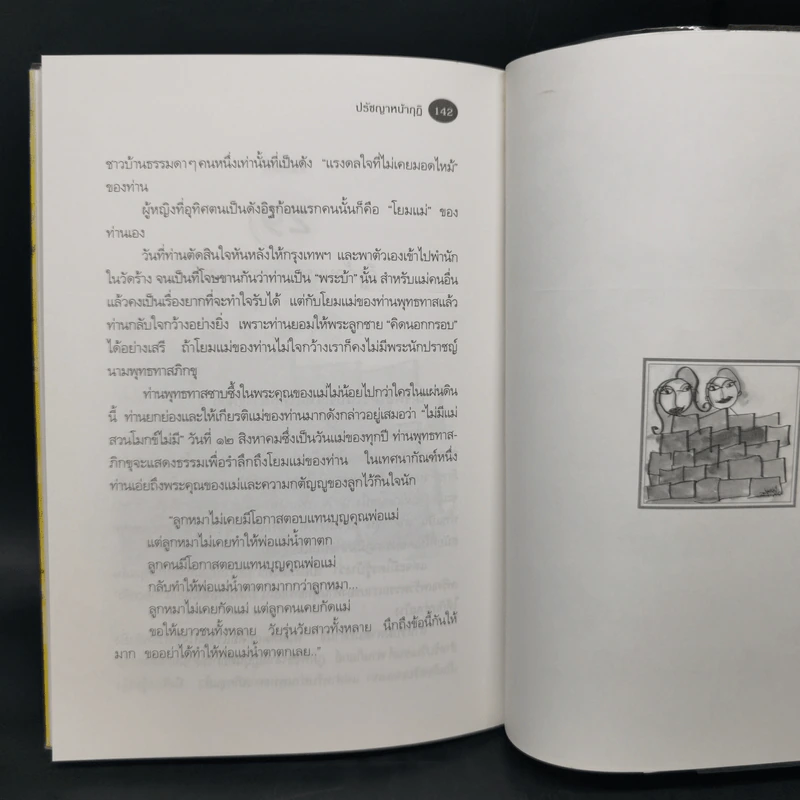 ปรัชญาหน้ากุฏิ 142
ชาวบ้านธรรมดาๆ คนหนึ่งเท่านั้นที่เป็นดัง "แรงดลใจที่ไม่เคยมอดไหม้"
ของท่าน
ผู้หญิงที่อุทิศตนเป็นดังอิฐก้อนแรกคนนั้นก็คือ "โยมแม่" ของ
ท่านเอง
วันที่ท่านตัดสินใจหันหลังให้กรุงเทพฯ และพาตัวเองเข้าไปพำนัก
ในวัดร้าง จนเป็นที่โจษขานกันว่าท่านเป็น "พระบ้า" นั้น สำหรับแม่คนอื่น
แล้วคงเป็นเรื่องยากที่จะทำใจรับได้ แต่กับโยมแม่ของท่านพุทธทาสแล้ว
ท่านกลับใจกว้างอย่างยิ่ง เพราะท่านยอมให้พระลูกชาย "คิดนอกกรอบ"
ได้อย่างเสรี ถ้าโยมแม่ของท่านไม่ใจกว้างเราก็คงไม่มีพระนักปราชญ์
นามพุทธทาสภิกขุ
ท่านพุทธทาสซาบซึ้งในพระคุณของแม่ไม่น้อยไปกว่าใครในแผ่นดิน
นี้ ท่านยกย่องและให้เกียรติแม่ของท่านมากดังกล่าวอยู่เสมอว่า "ไม่มีแม่
สวนโมกข์ไม่มี" วันที่ ๑๒ สิงหาคมซึ่งเป็นวันแม่ของทุกปี ท่านพุทธทาส-
ภิกขุจะแสดงธรรมเพื่อรำลึกถึงโยมแม่ของท่าน ในเทศนากัณฑ์หนึ่ง
ท่านเอ่ยถึงพระคุณของแม่และความกตัญญูของลูกไว้กินใจนัก
"ลูกหมาไม่เคยมีโอกาสตอบแทนบุญคุณพ่อแม่
แต่ลูกหมาไม่เคยทำให้พ่อแม่น้ำตาตก
ลูกคนมีโอกาสตอบแทนบุญคุณพ่อแม่
กลับทำให้พ่อแม่น้ำตาตกมากกว่าลูกหมา...
ลูกหมาไม่เคยกัดแม่ แต่ลูกคนเคยกัดแม่
ขอให้เยาวชนทั้งหลาย วัยรุ่นวัยสาวทั้งหลาย นึกถึงข้อนี้กันให้
มาก ขออย่าได้ทำให้พ่อแม่น้ำตาตกเลย.."